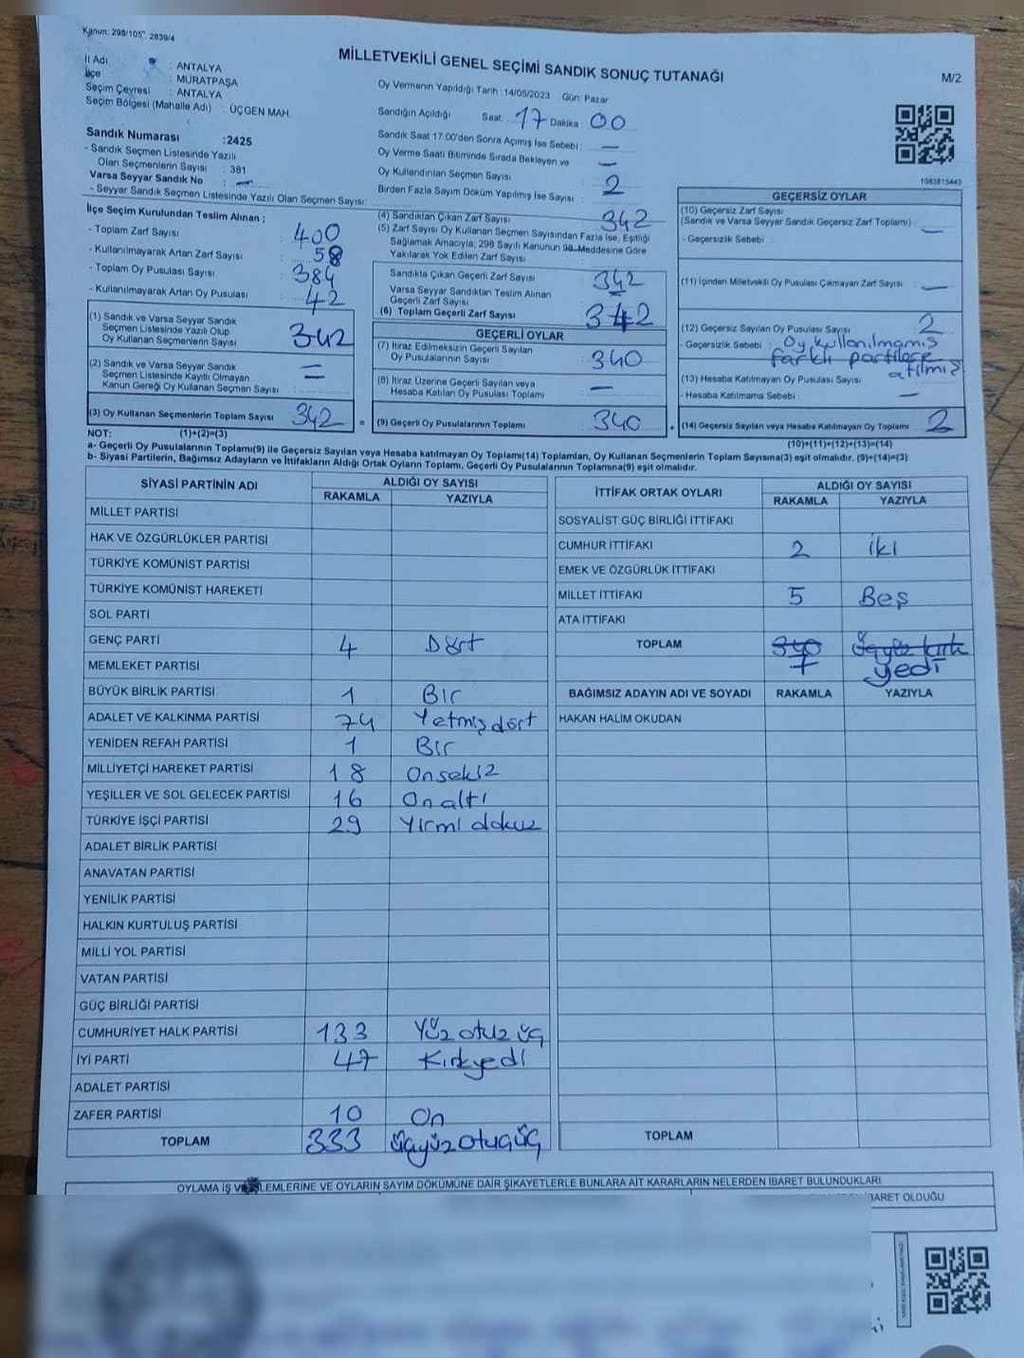 Kanun: 298/105", 2839/4
MİLLETVEKİLİ GENEL SEÇİMİ SANDIK SONUÇ TUTANAĞI
M/2
İl Adı : ANTALYA
İlçe : MURATPAŞA
Seçim Çevresi : ANTALYA
Seçim Bölgesi (Mahalle Adı) : ÜÇGEN MAH.
Sandık Numarası :2425
- Sandık Seçmen Listesinde Yazılı
Olan Seçmenlerin Sayısı : 381
Varsa Seyyar Sandık No : —
- Seyyar Sandık Seçmen Listesinde Yazılı Olan Seçmen Sayısı:
Oy Vermenin Yapıldığı Tarih :14/05/2023 Gün: Pazar
Sandığın Açıldığı Saat: 17 Dakika 00
Sandık Saat 17:00'den Sonra Açılmış İse Sebebi: —
Oy Verme Saati Bitiminde Sırada Bekleyen ve —
Oy Kullandırılan Seçmen Sayısı
Birden Fazla Sayım Döküm Yapılmış İse Sayısı : 2
1083815443
İlçe Seçim Kurulundan Teslim Alınan ;
- Toplam Zarf Sayısı : 400
- Kullanılmayarak Artan Zarf Sayısı : 58
- Toplam Oy Pusulası Sayısı : 384
- Kullanılmayarak Artan Oy Pusulası : 42
(1) Sandık ve Varsa Seyyar Sandık
Seçmen Listesinde Yazılı Olup
Oy Kullanan Seçmenlerin Sayısı 342
(2) Sandık ve Varsa Seyyar Sandık
Seçmen Listesinde Kayıtlı Olmayan
Kanun Gereği Oy Kullanan Seçmen Sayısı : —
(3) Oy Kullanan Seçmenlerin Toplam Sayısı 342 =
(4) Sandıktan Çıkan Zarf Sayısı 342
(5) Zarf Sayısı Oy Kullanan Seçmen Sayısından Fazla İse, Eşitliği
Sağlamak Amacıyla, 298 Sayılı Kanunun 98. Maddesine Göre
Yakılarak Yok Edilen Zarf Sayısı : —
Sandıkta Çıkan Geçerli Zarf Sayısı 342
Varsa Seyyar Sandıktan Teslim Alınan
Geçerli Zarf Sayısı —
(6) Toplam Geçerli Zarf Sayısı 342
GEÇERLİ OYLAR
(7) İtiraz Edilmeksizin Geçerli Sayılan
Oy Pusulalarının Sayısı 340
(8) İtiraz Üzerine Geçerli Sayılan veya
Hesaba Katılan Oy Pusulası Toplamı —
(9) Geçerli Oy Pusulalarının Toplamı 340 +
GEÇERSİZ OYLAR
(10) Geçersiz Zarf Sayısı
(Sandık ve Varsa Seyyar Sandık Geçersiz Zarf Toplamı) : —
- Geçersizlik Sebebi :
(11) İçinden Milletvekili Oy Pusulası Çıkmayan Zarf Sayısı : —
(12) Geçersiz Sayılan Oy Pusulası Sayısı : 2
- Geçersizlik Sebebi : Oy kullanılmamış
farklı partilere
atılmış
(13) Hesaba Katılmayan Oy Pusulası Sayısı : —
- Hesaba Katılmama Sebebi :
(14) Geçersiz Sayılan veya Hesaba Katılmayan Oy Toplamı 2
NOT: (1)+(2)=(3) (10)+(11)+(12)+(13)=(14)
a- Geçerli Oy Pusulalarının Toplamı(9) ile Geçersiz Sayılan veya Hesaba katılmayan Oy Toplamı(14) Toplamları, Oy Kullanan Seçmenlerin Toplam Sayısına(3) eşit olmalıdır. (9)+(14)=(3)
b- Siyasi Partilerin, Bağımsız Adayların ve İttifakların Aldığı Ortak Oyların Toplamı, Geçerli Oy Pusulalarının Toplamına(9) eşit olmalıdır.
SİYASİ PARTİNİN ADI ALDIĞI OY SAYISI
RAKAMLA YAZIYLA
MİLLET PARTİSİ
HAK VE ÖZGÜRLÜKLER PARTİSİ
TÜRKİYE KOMÜNİST PARTİSİ
TÜRKİYE KOMÜNİST HAREKETİ
SOL PARTİ
GENÇ PARTİ 4 Dört
MEMLEKET PARTİSİ
BÜYÜK BİRLİK PARTİSİ 1 Bir
ADALET VE KALKINMA PARTİSİ 74 Yetmişdört
YENİDEN REFAH PARTİSİ 1 Bir
MİLLİYETÇİ HAREKET PARTİSİ 18 Onsekiz
YEŞİLLER VE SOL GELECEK PARTİSİ 16 Onaltı
TÜRKİYE İŞÇİ PARTİSİ 29 Yirmi dokuz
ADALET BİRLİK PARTİSİ
ANAVATAN PARTİSİ
YENİLİK PARTİSİ
HALKIN KURTULUŞ PARTİSİ
MİLLİ YOL PARTİSİ
VATAN PARTİSİ
GÜÇ BİRLİĞİ PARTİSİ
CUMHURİYET HALK PARTİSİ 133 Yüz otuz üç
İYİ PARTİ 47 Kırkyedi
ADALET PARTİSİ
ZAFER PARTİSİ 10 On
TOPLAM 333 üçyüzotuzüç
İTTİFAK ORTAK OYLARI ALDIĞI OY SAYISI
RAKAMLA YAZIYLA
SOSYALİST GÜÇ BİRLİĞİ İTTİFAKI
CUMHUR İTTİFAKI 2 iki
EMEK VE ÖZGÜRLÜK İTTİFAKI
MİLLET İTTİFAKI 5 Beş
ATA İTTİFAKI
TOPLAM 340 üçyüz kırk
7 yedi
BAĞIMSIZ ADAYIN ADI VE SOYADI RAKAMLA YAZIYLA
HAKAN HALİM OKUDAN
TOPLAM
OYLAMA İŞ LEMLERİNE VE OYLARIN SAYIM DÖKÜMÜNE DAİR ŞİKAYETLERLE BUNLARA AİT KARARLARIN NELERDEN İBARET BULUNDUKLARI
İBARET OLDUĞU